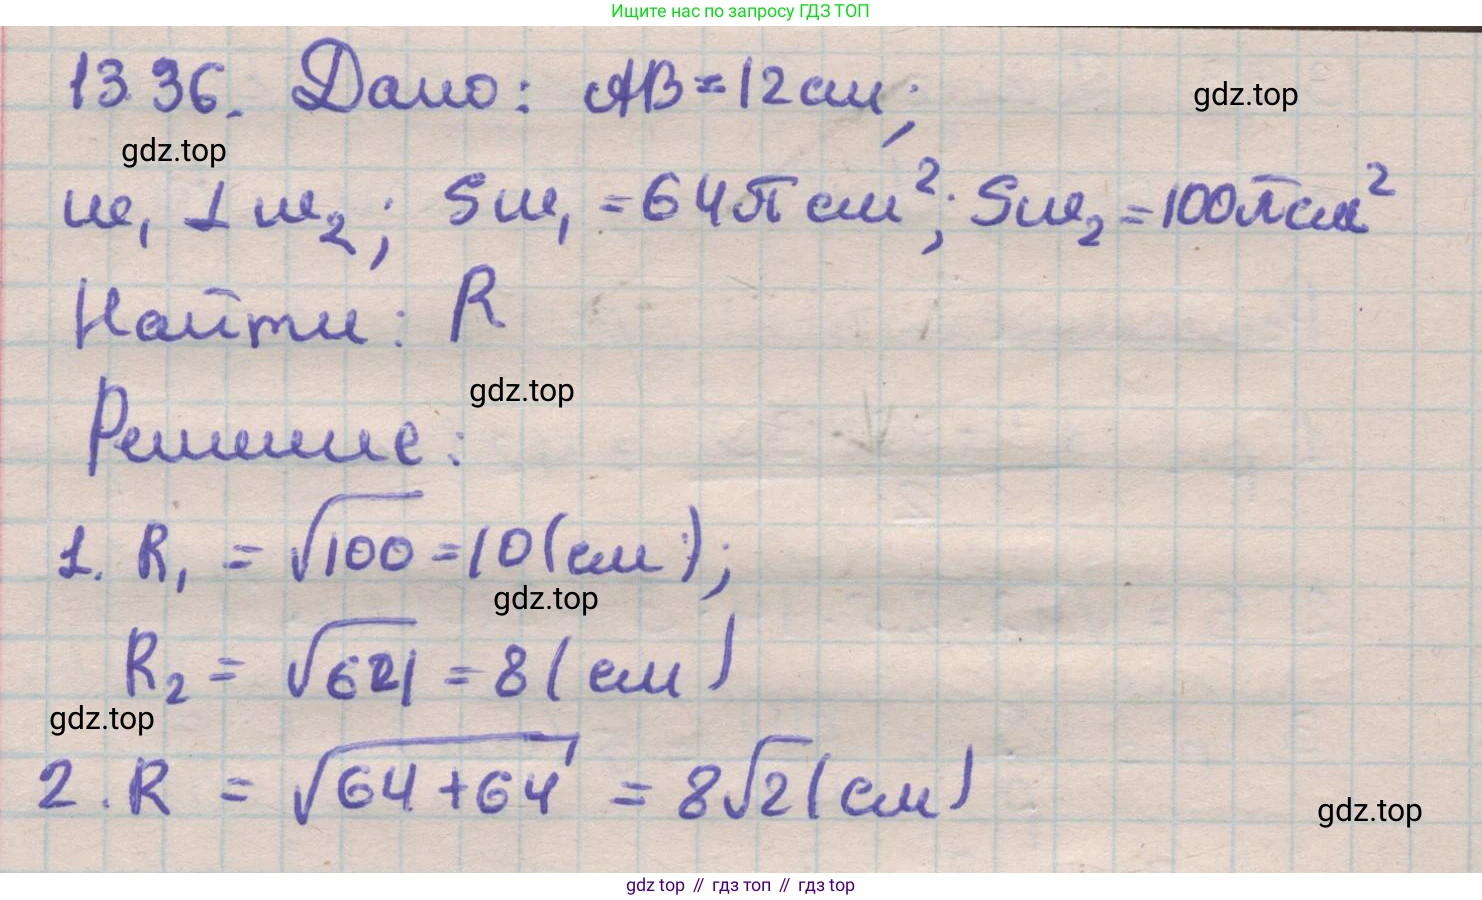 Ищите нас по запросу ГДЗ ТОП
13.36. Дано: AB = 12 см;
gdz.top
gdz.top
ш₁ ⊥ ш₂; Sш₁ = 64π см²; Sш₂ = 100π см²
Найти: R
gdz.top
Решение:
1. R₁ = √100 = 10 (см);
gdz.top
R₂ = √64 = 8 (см)
gdz.top
2. R = √64+64 = 8√2 (см)
gdz.top
gdz top // гдз топ // gdz top